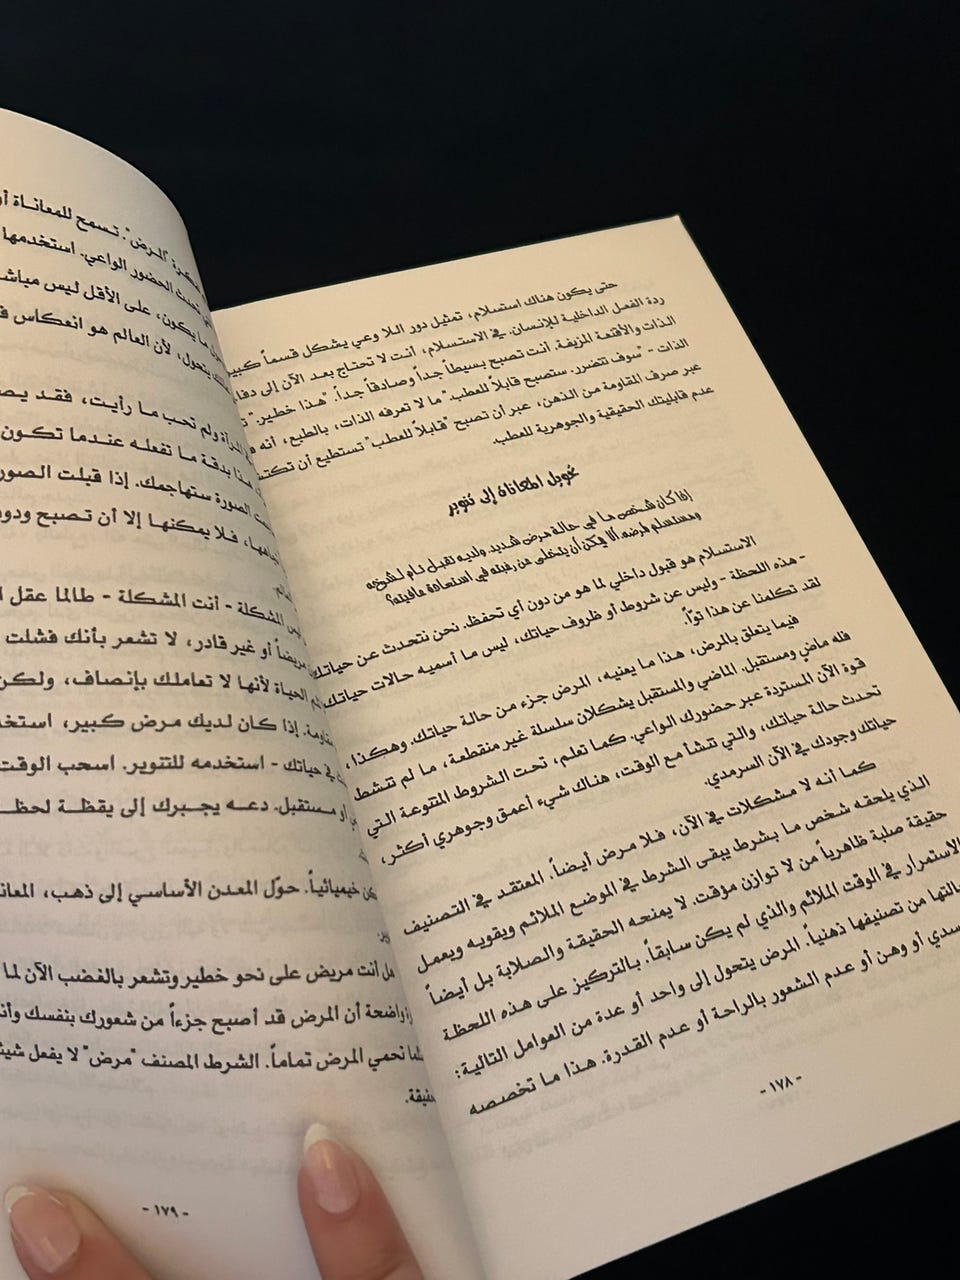 حتى يكون هناك استسلام، تمثيل دور اللا وعي يشكل قسماً كبير
ردة الفعل الداخلية للإنسان. في الاستسلام، أنت لا تحتاج بعد الآن إلى دفا
الذات والأقنعة المزيفة. أنت تصبح بسيطاً جداً وصادقاً جداً. "هذا خطير"
الذات - "سوف تتضرر. ستصبح قابلاً للعطب." ما لا تعرفه الذات، بالطبع، أنه
عبر صرف المقاومة من الذهن، عبر أن تصبح "قابلاً للعطب" تستطيع أن تكت
عدم قابليتك الحقيقية والجوهرية للعطب.
تحويل المعاناة إلى تنوير
إذا كان شخص ما في حالة مرض شديد ولديه تقبل تام
ومستسلم لمرضه، ألا يمكن أن يتخلى عن رغبته في استعادة عافيته؟
الاستسلام هو قبول داخلي لما هو من دون أي تحفظ. نحن نتحدث عن حياتك
- هذه اللحظة - وليس عن شروط أو ظروف حياتك، ليس ما أسميه حالات حياتك
لقد تكلمنا عن هذا توّاً.
فيما يتعلق بالمرض، هذا ما يعنيه، المرض جزء من حالة حياتك. وهكذا،
فله ماضٍ ومستقبل. الماضي والمستقبل يشكلان سلسلة غير منقطعة، ما لم تنشط
قوة الآن المستردة عبر حضورك الواعي. كما تعلم، تحت الشروط المتنوعة التي
تحدث حالة حياتك، والتي تنشأ مع الوقت، هناك شيء أعمق وجوهري أكثر،
حياتك وجودك في الآن السرمدي.
كما أنه لا مشكلات في الآن، فلا مرض أيضاً. المعتقد في التصنيف
الذي يلحقه شخص ما بشرط يبقى الشرط في الموضع الملائم ويقويه ويعمل
حقيقة صلبة ظاهرياً من لا توازن مؤقت. لا يمنحه الحقيقة والصلابة بل أيضاً
الاستمرار في الوقت الملائم والذي لم يكن سابقاً. بالتركيز على هذه اللحظة
من تصنيفها ذهنياً. المرض يتحول إلى واحد أو عدة من العوامل التالية:
سدي أو وهن أو عدم الشعور بالراحة أو عدم القدرة. هذا ما تخصصه
- ١٧٨ -
"المرض". تسمح للمعاناة أ
تحدث الحضور الواعي. استخدمها
ما يكون، على الأقل ليس مباش
يتحول، لأن العالم هو انعكاس ف
المرآة ولم تحب ما رأيت، فقد يص
هذا بدقة ما تفعله عندما تكون
الصورة ستهاجمك. إذا قبلت الصور
فلا يمكنها إلا أن تصبح ودود
المشكلة - أنت المشكلة - طالما عقل ا
مريضاً أو غير قادر، لا تشعر بأنك فشلت
الحياة لأنها لا تعاملك بإنصاف، ولكن
إذا كان لديك مرض كبير، استخد
في حياتك - استخدمه للتنوير. اسحب الوقت
أو مستقبل. دعه يجبرك إلى يقظة لحظ
كن خيميائياً. حوّل المعدن الأساسي إلى ذهب، المعان
هل أنت مريض على نحو خطير وتشعر بالغضب الآن لما
واضحة أن المرض قد أصبح جزءاً من شعورك بنفسك وأن
تحمي المرض تماماً. الشرط المصنف "مرض" لا يفعل شيئ
- ١٧٩ -